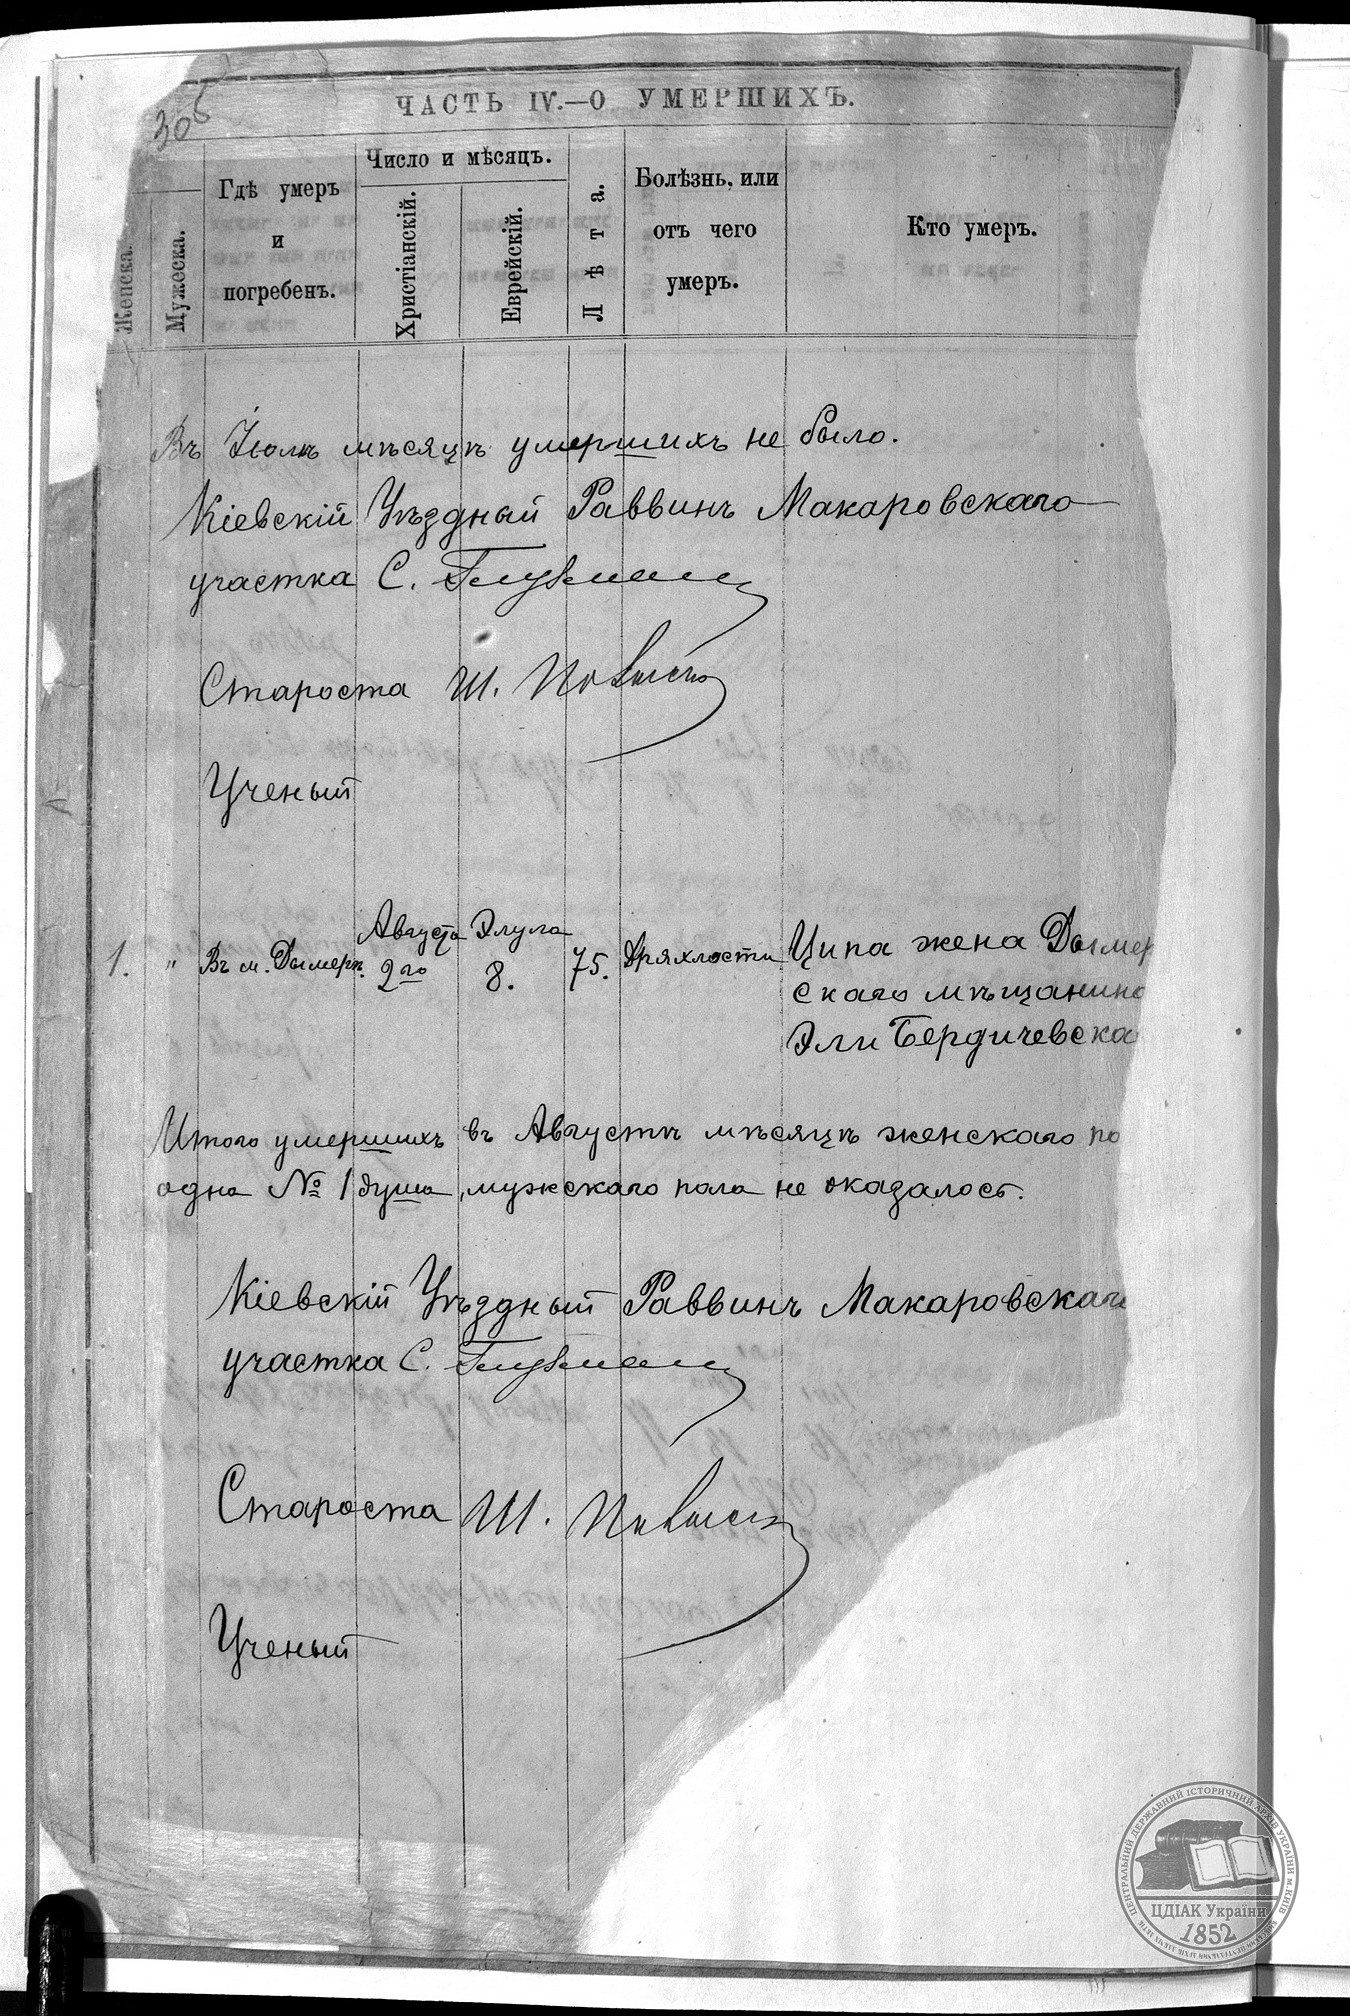 305
ЧАСТЬ IV.—О УМЕРШИХЪ.
Женска.
Мужеска.
Гдѣ умеръ
и
погребенъ.
Число и мѣсяцъ.
Христіанскій.
Еврейскій.
Лѣта.
Болѣзнь, или
отъ чего
умеръ.
Кто умеръ.
Въ Іюлѣ мѣсяцѣ умершихъ не было.
Кіевскій Уѣздный Раввинъ Макаровскаго
участка С.
Староста Ш.
Ученый
1. " Въ м. Дымерѣ. Августа 2го Элула 8. 75. Дряхлости Ципа жена Дымер
скаго мѣщанина
Эли Бердичевска
Итого умершихъ въ Августѣ мѣсяцѣ женскаго по
одна № 1 душа, мужскаго пола не оказалось.
Кіевскій Уѣздный Раввинъ Макаровскаго
участка С.
Староста Ш.
Ученый
ЦЕНТРАЛЬНИЙ ДЕРЖАВНИЙ ІСТОРИЧНИЙ АРХІВ УКРАЇНИ м. КИЇВ
ЦДІАК України
1852